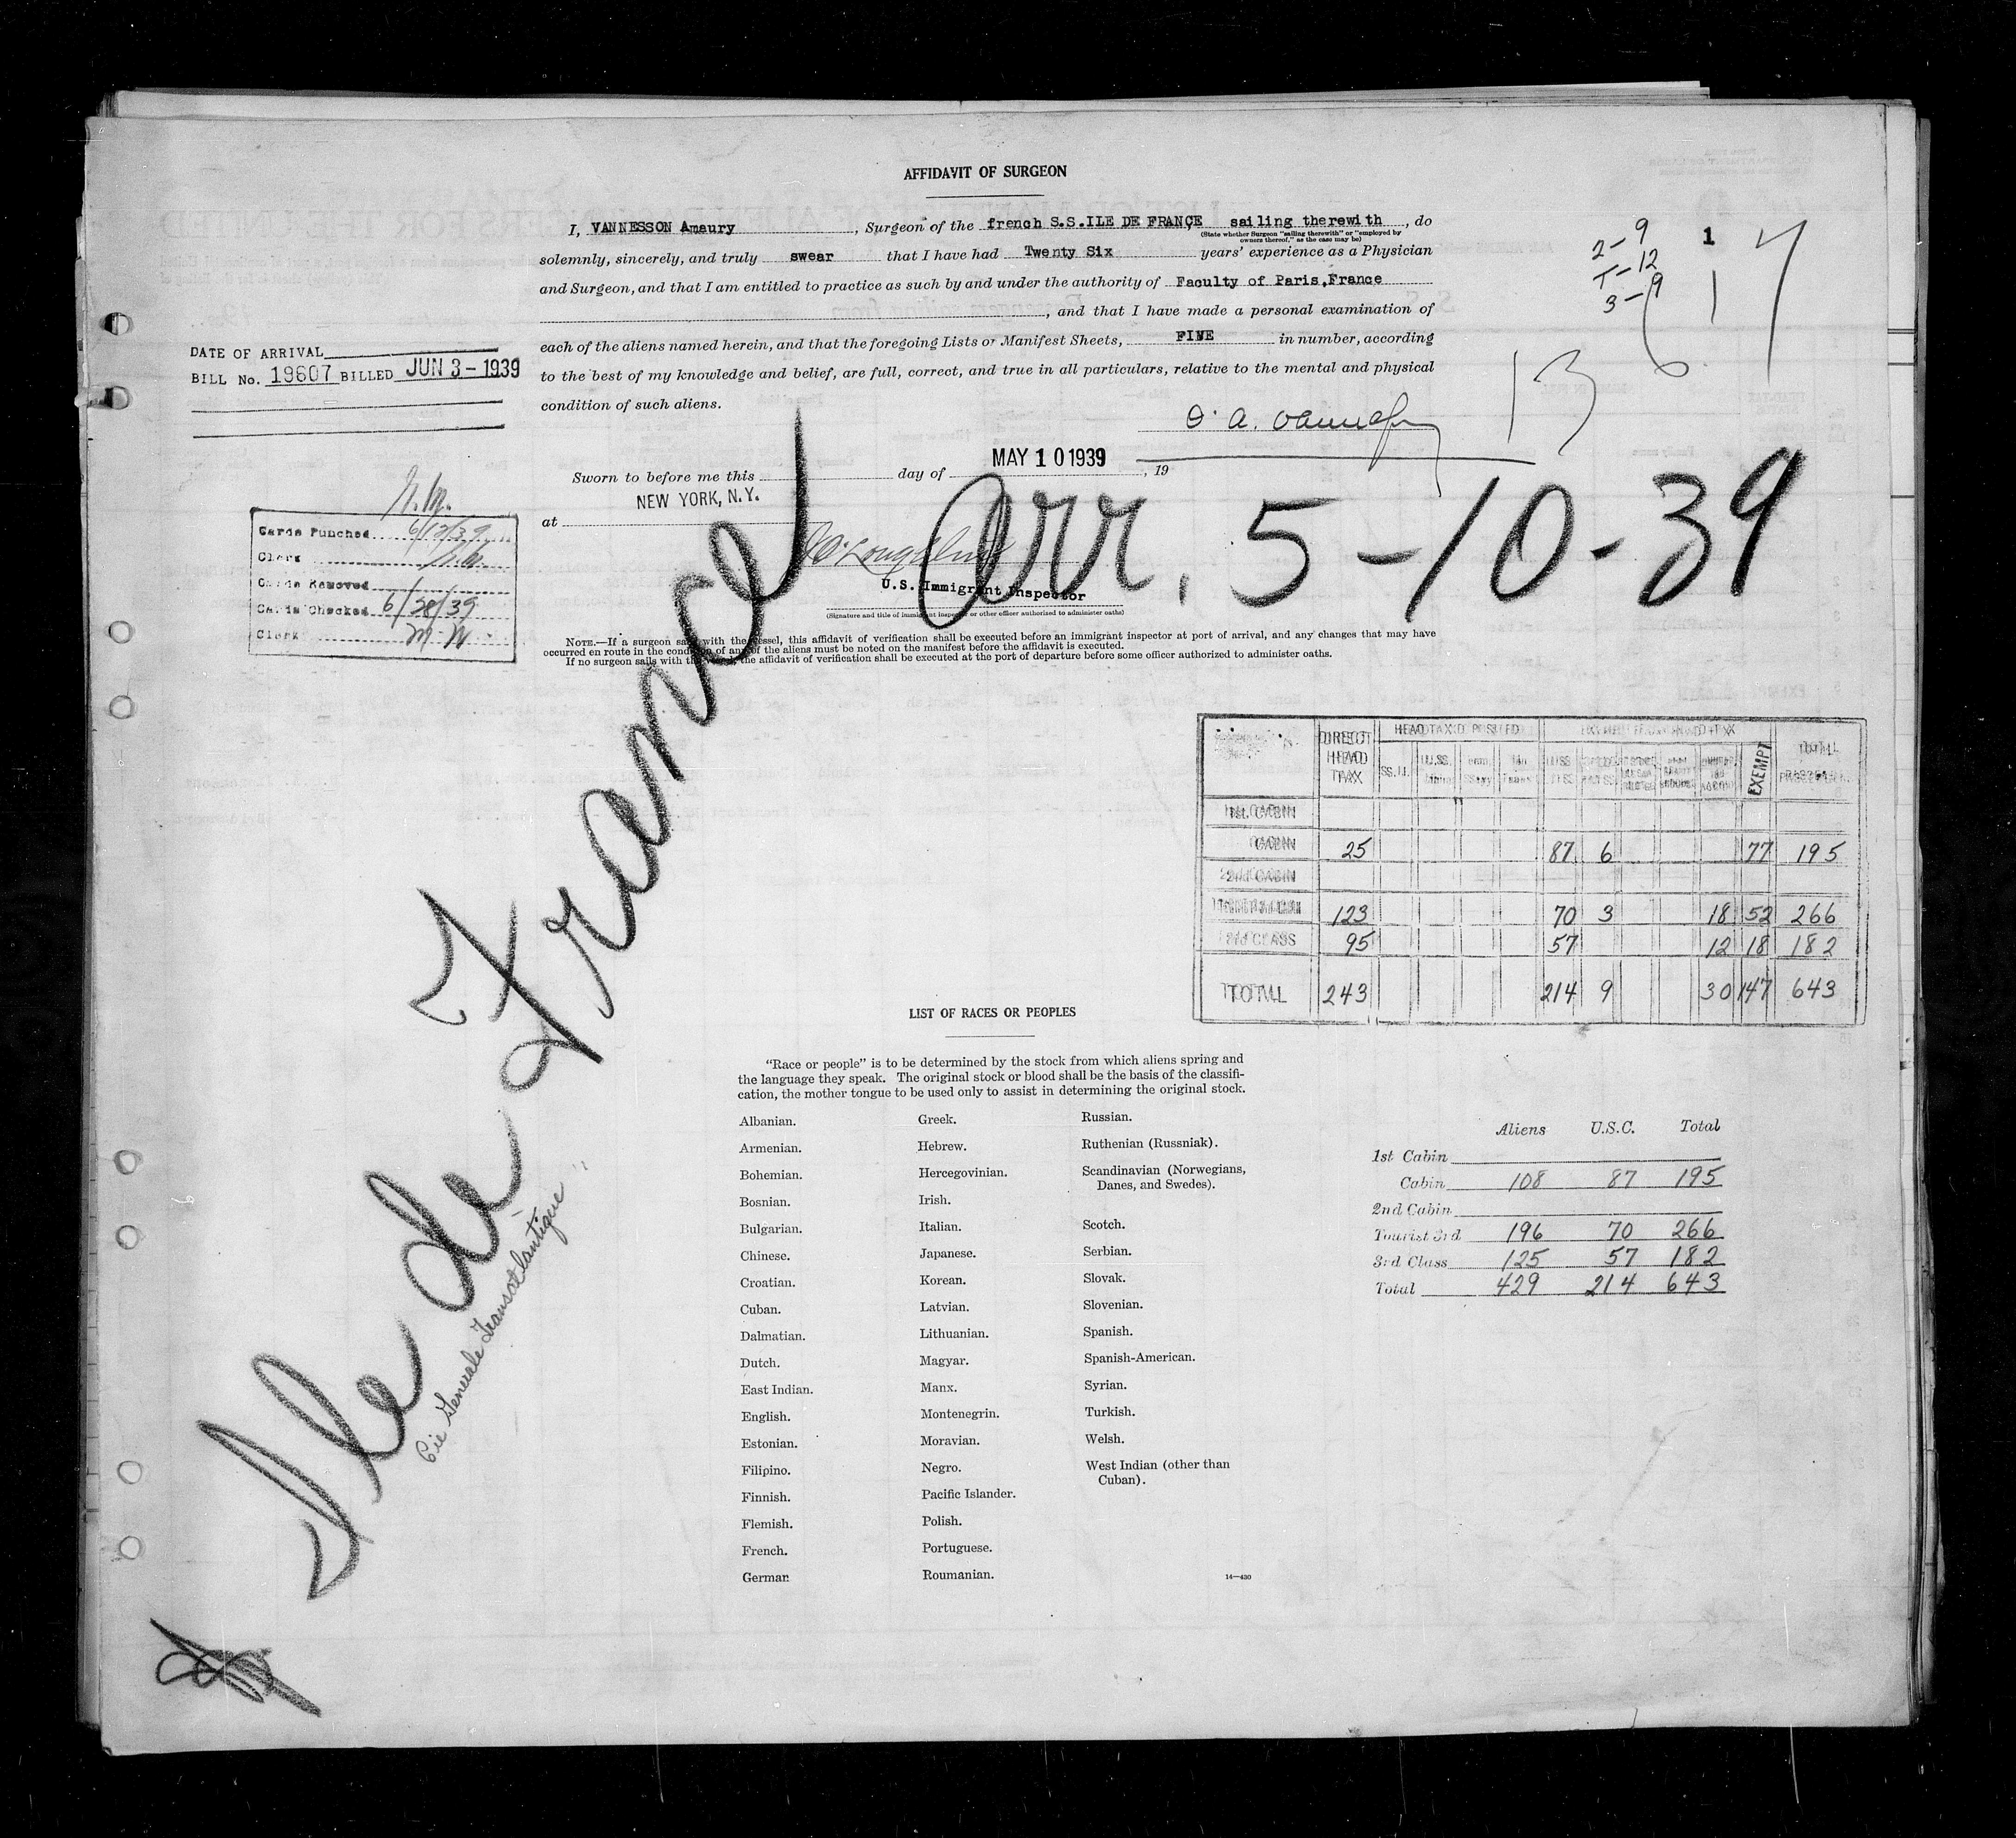 AFFIDAVIT OF SURGEON
I, VANNESSON Amaury, Surgeon of the french S.S.ILE DE FRANÇE sailing therewith, do
(State whether Surgeon "sailing therewith" or "employed by
owners thereof," as the case may be)
solemnly, sincerely, and truly swear that I have had Twenty Six years' experience as a Physician
and Surgeon, and that I am entitled to practice as such by and under the authority of Faculty of Paris,France
, and that I have made a personal examination of
each of the aliens named herein, and that the foregoing Lists or Manifest Sheets, FINE in number, according
to the best of my knowledge and belief, are full, correct, and true in all particulars, relative to the mental and physical
condition of such aliens.
2-9
T-12
3-9
1
17
13
DATE OF ARRIVAL
BILL No. 19607 BILLED JUN 3-1939
Sworn to before me this day of MAY 10 1939, 19
at NEW YORK, N.Y.
O'Loughlin
U.S. Immigrant Inspector
(Signature and title of immigrant inspector or other officer authorized to administer oaths)
Arr. 5-10-39
Cards Punched 6/12/39
Clerk
Cards Removed
Cards Checked 6/28/39
Clerk M.W.
NOTE.—If a surgeon sails with the vessel, this affidavit of verification shall be executed before an immigrant inspector at port of arrival, and any changes that may have
occurred en route in the condition of any of the aliens must be noted on the manifest before the affidavit is executed.
If no surgeon sails with the vessel, the affidavit of verification shall be executed at the port of departure before some officer authorized to administer oaths.
Ile de France
Cie Generale Transatlantique
DIRECT HEAD TAX
HEAD TAX DEPOSITED
EXEMPT
TOTAL
1st CABIN
CABIN 25 87 6 77 195
2nd CABIN
123 70 3 18 52 266
CLASS 95 57 12 18 182
TOTAL 243 214 9 30 147 643
LIST OF RACES OR PEOPLES
"Race or people" is to be determined by the stock from which aliens spring and
the language they speak. The original stock or blood shall be the basis of the classifi-
cation, the mother tongue to be used only to assist in determining the original stock.
Albanian.
Armenian.
Bohemian.
Bosnian.
Bulgarian.
Chinese.
Croatian.
Cuban.
Dalmatian.
Dutch.
East Indian.
English.
Estonian.
Filipino.
Finnish.
Flemish.
French.
German
Greek.
Hebrew.
Hercegovinian.
Irish.
Italian.
Japanese.
Korean.
Latvian.
Lithuanian.
Magyar.
Manx.
Montenegrin.
Moravian.
Negro.
Pacific Islander.
Polish.
Portuguese.
Roumanian.
Russian.
Ruthenian (Russniak).
Scandinavian (Norwegians,
Danes, and Swedes).
Scotch.
Serbian.
Slovak.
Slovenian.
Spanish.
Spanish-American.
Syrian.
Turkish.
Welsh.
West Indian (other than
Cuban).
14—430
Aliens U.S.C. Total
1st Cabin
Cabin 108 87 195
2nd Cabin
Tourist 3rd 196 70 266
3rd Class 125 57 182
Total 429 214 643